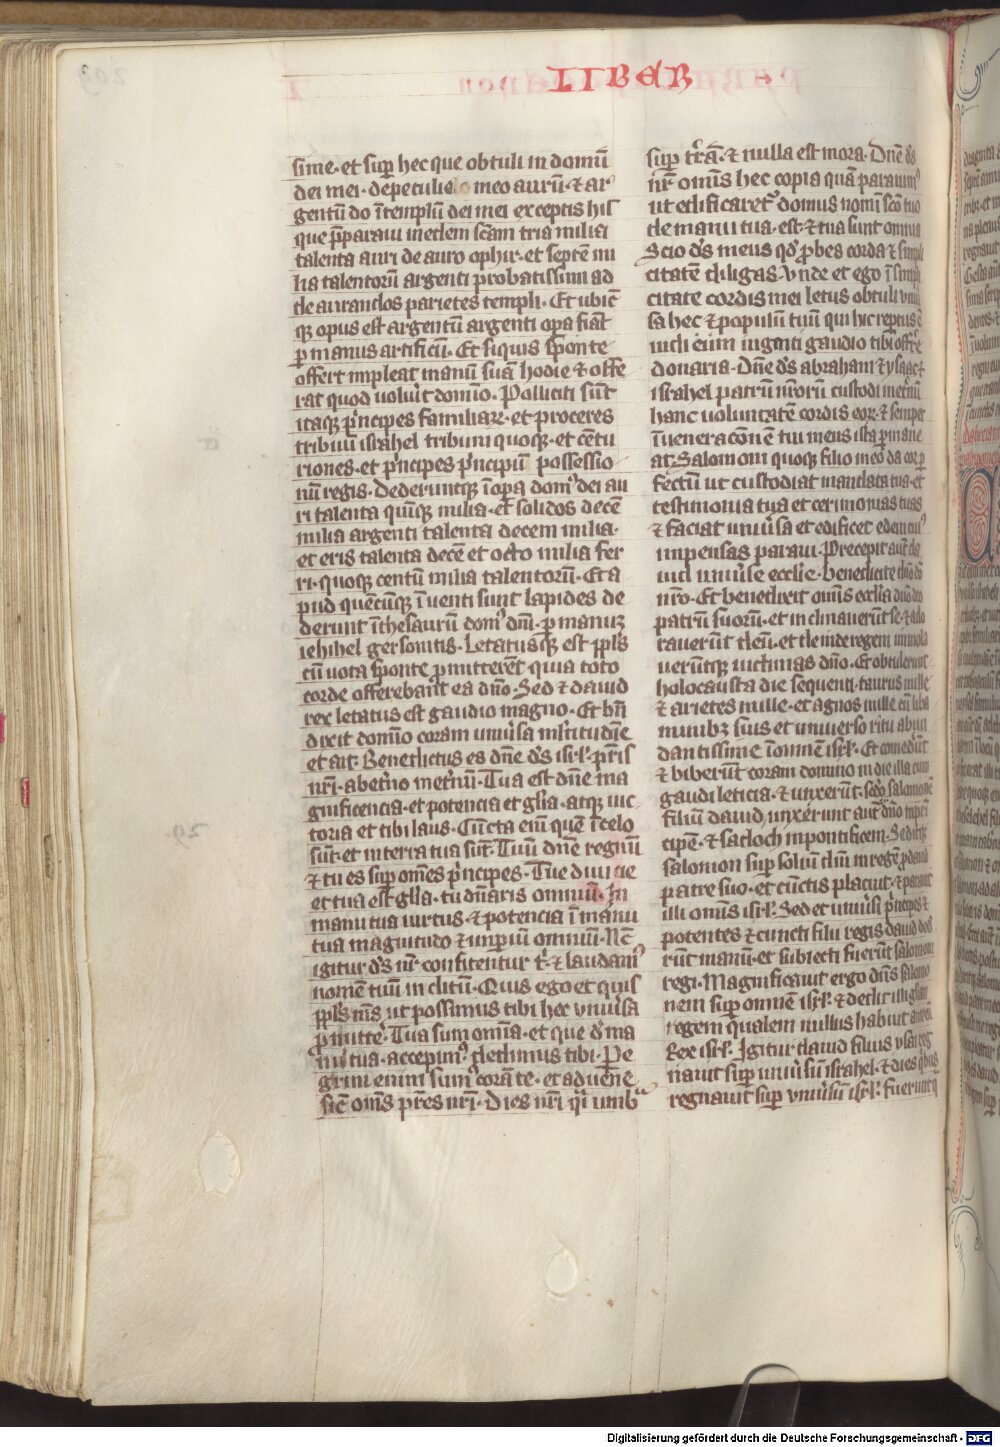 LIBER
sime · et sup̱ hec que obtuli in domū
dei mei · de peculio meo aurū · ⁊ ar
gentū do ī templū dei mei exceptis his
que p̄paraui in edem sc̄am tria milia
talenta auri de auro ophir · et septē mi
lia talentorū argenti probatissimi ad
de aurandos parietes templi · Et ubicū
qꝫ opus est argentū argenti opa fiāt
ꝑ manus artificū · Et siquis sponte
offert impleat manū suā hodie ⁊ offe
rat quod uoluit domīo · Polliciti sūt
itaqꝫ pͥncipes familiare · et proceres
tribuū israhel tribuni quoqꝫ · et cētu
riones · et pͥncipes pͥncipū possessio
nū regis · Dederuntqꝫ ī opa domꝰ dei au
ri talenta quīsqꝫ milia · et solidos decē
milia argenti talenta decem milia ·
et eris talenta decē et octo milia fer
ri · quoqꝫ centū milia talentorū · Et a
pud quēcūqꝫ īuenti sunt lapides de
derunt ī thesaurū domꝰ dn̄i · ꝑ manuꝫ
iehihel gersonitis · Letatusqꝫ est ppl̄s
cū uota sponte ꝓmitterēt quia toto
corde offerebant ea dn̄o · Sed ⁊ dauid
rex letatus est gaudio magno · Et bn̄
dixit domīo coram uniūsa ml̄titudīe
et ait · Benedictus es dn̄e ds̄ isrl · pr̄is
nr̄i · ab etͥno in etͥnū · Tua est dn̄e ma
gnificencia · et potencia et gl̄ia · atqꝫ uic
toria et tibi laus · Cūcta eni͂ que ī celo
sūt · et in terra tua sūt · Tuū dn̄e regnū
⁊ tu es sup̱ om̄es pͥncipes · Tue diuitie
et tua est gl̄ia · tu dn̄aris omniū · In
manu tua uirtus · ⁊ potencia ī manu
tua magnitudo ⁊ imperiū omniū · Nūc
igitur ds̄ nr̄ confitentur tͥ · ⁊ laudamꝰ
nomē tuū in clitū · Quis ego et quis
ppl̄s ms̄ ut possimus tibi hec uniūsa
ꝓmittͤe · Tua sum om̄ia · et que d̄ ma
nu tua · accepimꝰ dedimus tibi · Pe
grini enim sumꝰ corā te · et aduene
sic̄ om̄s pr̄es nr̄i · Dies nr̄i qͥ umbᵃ
sup̱ tr̄ā · ⁊ nulla est mora · Dn̄e ds̄
nr̄ om̄is hec copia quā parauimꝰ
ut edificaretᷣ domus nomī sc̄o tuo
de manu tua · est · ⁊ tua sunt omnia
Scio ds̄ meus qd̄ ꝓbes corda ⁊ simpli
citatē diligas · Vnde et ego ī simpli
citate cordis mei letus obtuli uniū
sa hec ⁊ populū tuū qui hic reptus ē
uidi cum ingēti gaudio tibi offr̄e
donaria · Dn̄e ds̄ abraham ⁊ ysaac ⁊
israhel patrū nr̄orū custodi in etͥnū
hanc uoluntatē cordis eoꝝ · ⁊ semper
ī ueneracōnē tui mens ista ꝑmane
at · Salomoni quoqꝫ filio meo da cor ꝑ
fectū ut custodiat mandata tua · et
testimonia tua et cerimonias tuas
⁊ faciat uniūsa et edificet edem cuiꝰ
impensas paraui · Precepit aūt da
uid uniūse ecclīe · benedicite dn̄o dō
nr̄o · Et benedixit omīs ecclīa dn̄o dō
patrū suorū · et inclinauerūt se · ⁊ ado
rauerūt deū · et deinde regem immola
uerūtqꝫ uictimas dn̄o · Et obtulerunt
holocausta die sequenti · taurus mille
⁊ arietes mille · et agnos mille cū liba
minibꝫ suis et uniuerso ritu abun
dantissime ī omnē isrl · Et comedūt
⁊ biberūt coram domino in die illa cum
gaudi leticia · ⁊ unxerūt · sc̄do salomonē
filiū dauid unxerunt aūt dn̄o in pͥn
cipē · ⁊ sadoch in pontificem · Seditqꝫ
salomon sup̱ soliū dn̄i in regē ꝓ dauid
patre suo · et cūctis placuit · ⁊ paruit
illi omīs isrl · Sed et uniūsi pͥncipes ⁊
potentes ⁊ cuncti filii regis dauid ded̄
rūt manū · et subiecti fuerūt salomoni
regi · Magnificauit ergo dn̄s salomo
nem sup̱ omnē isrl · ⁊ dedit illi gl̄iam
regem qualem nullus habuit ante eū
Rex isrl · Igitur dauid filius ysai reg
nauit sup̱ uniūsū israhel · ⁊ dies qͥbus
regnauit sup̱ uniūsū isrl · fuerunt qͣ
Digitalisierung gefördert durch die Deutsche Forschungsgemeinschaft - DFG